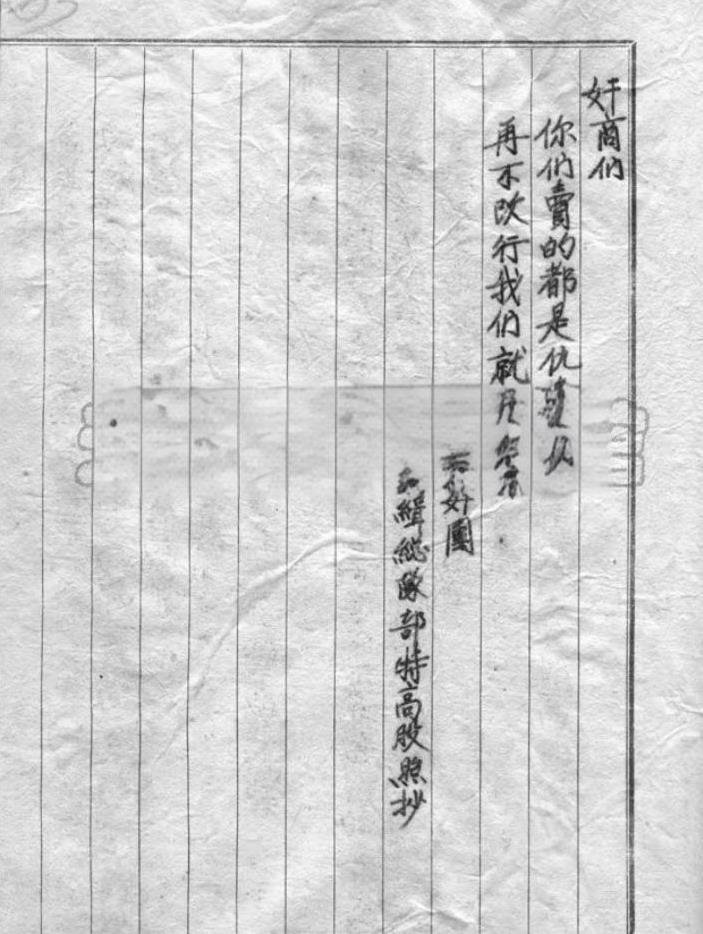 奸商们
你们賣的都是仇貨
再不改行我们就
奸團
緝総隊部特高股照抄